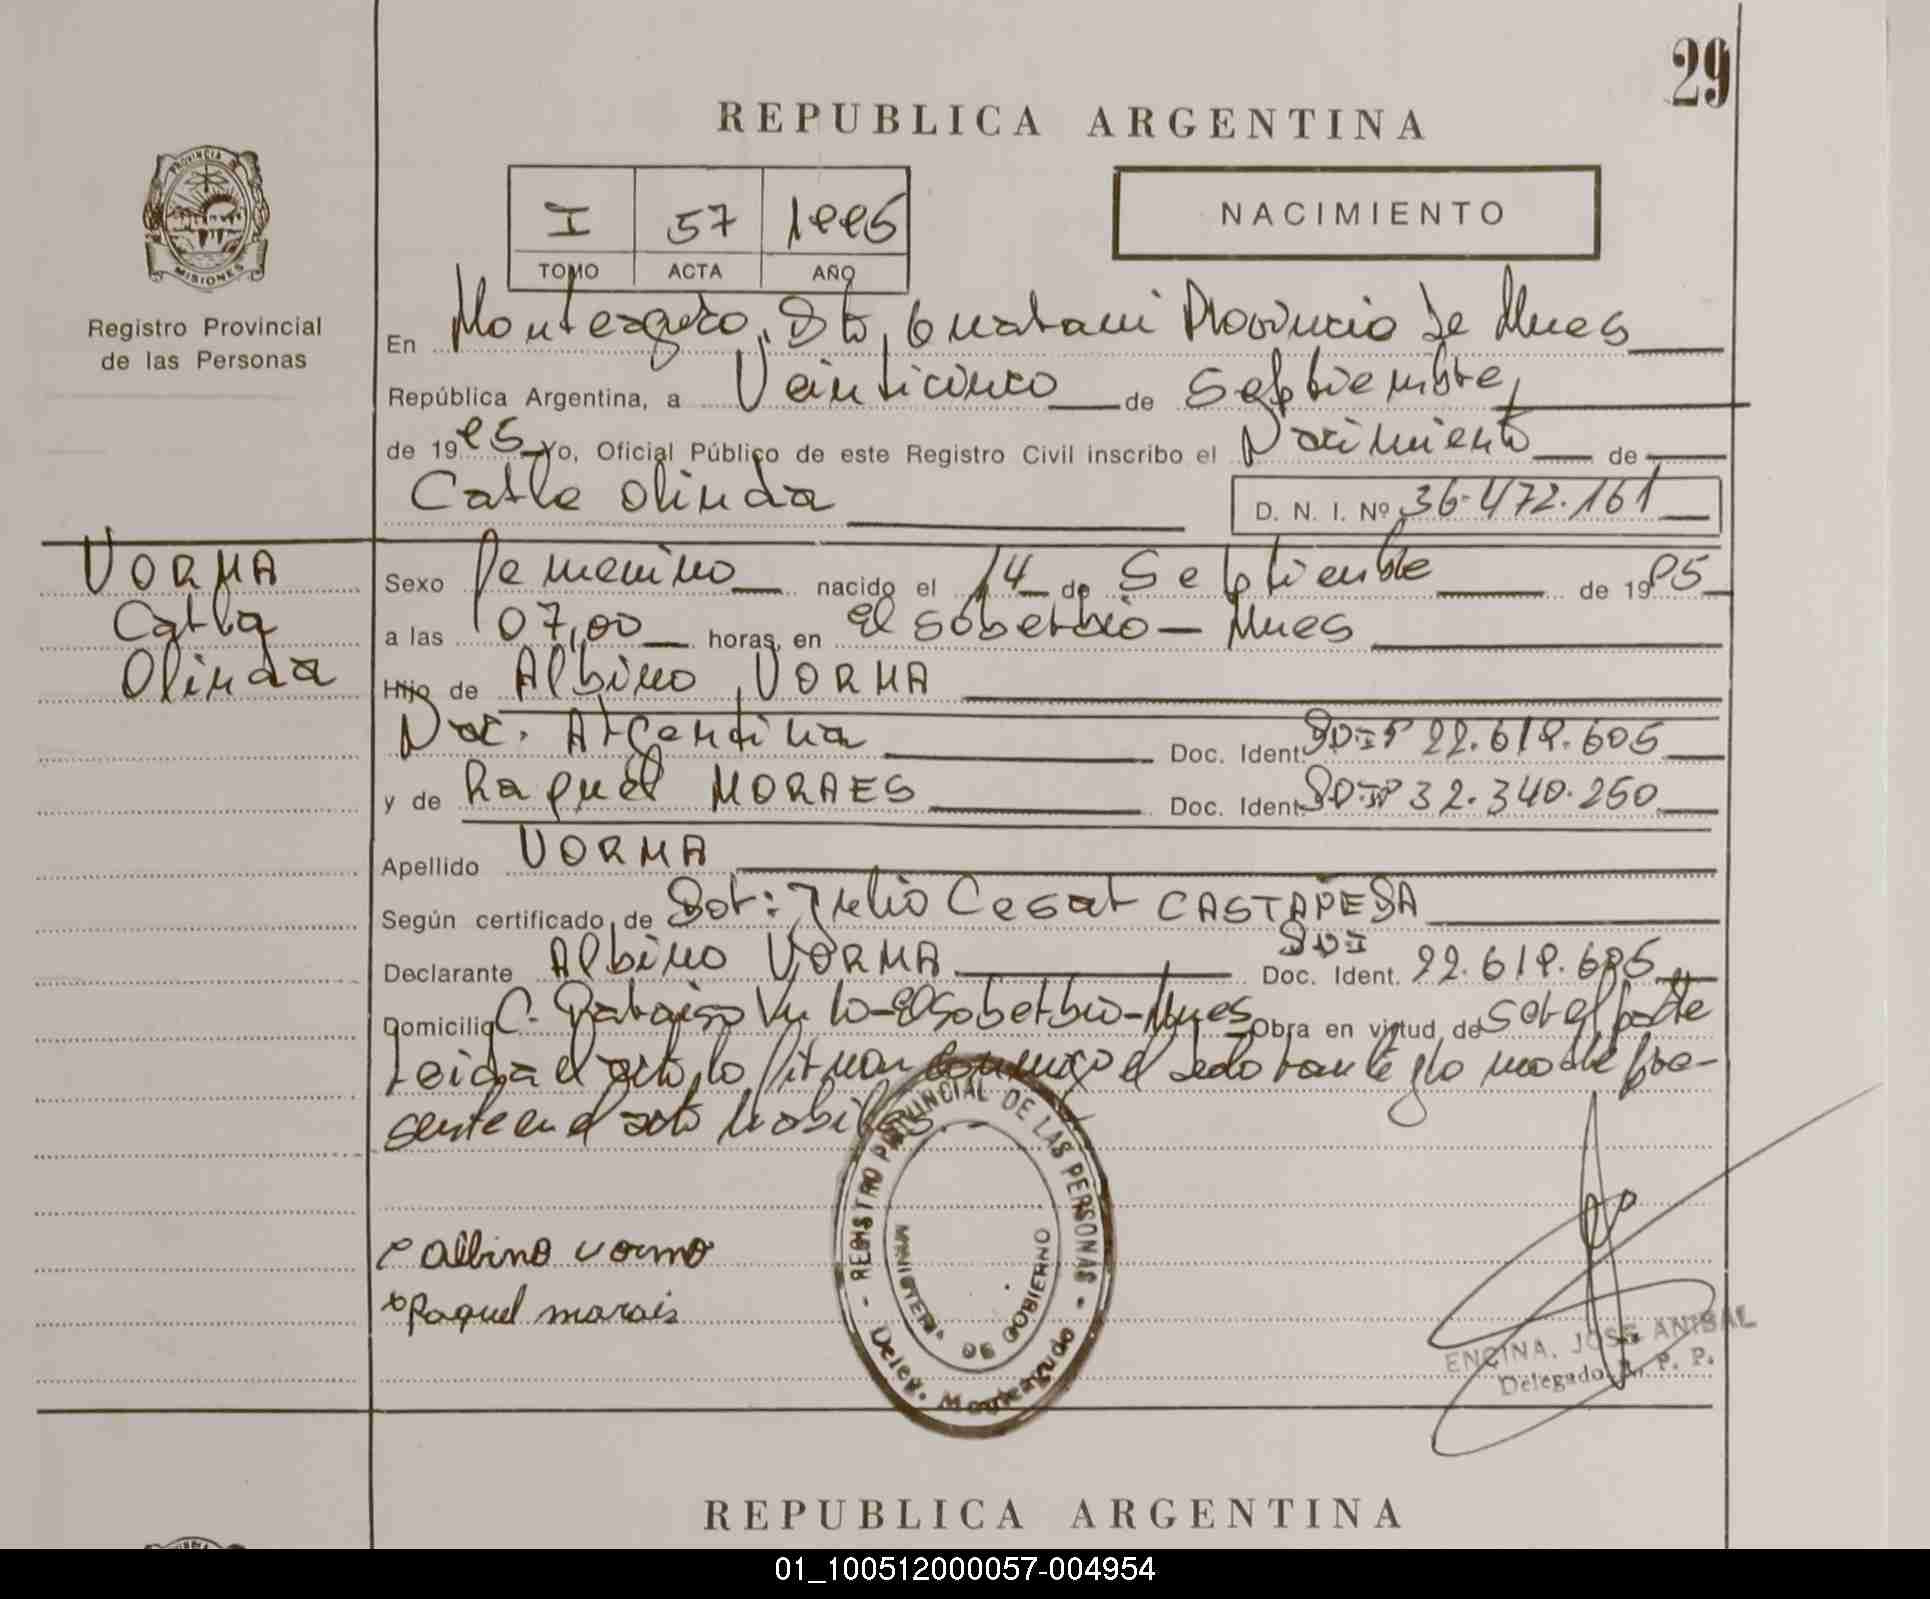 29
REPUBLICA ARGENTINA
PROVINCIA DE
MISIONES
Registro Provincial
de las Personas
I 57 1995
TOMO ACTA AÑO
NACIMIENTO
En Monteagudo, Dto, Guarani Provincia de Mnes
República Argentina, a Veinticinco de Septiembre,
de 19 95 Yo, Oficial Público de este Registro Civil inscribo el Nacimiento de
Carla Olinda
D. N. I. Nº 36.472.161
VORMA
Carla
Olinda
Sexo Femenino nacido el 14 de Septiembre de 19 95
a las 07,00 horas, en El Soberbio - Mnes
Hijo de Albino VORMA
Nac. Argentina Doc. Ident. 22.619.605
y de Raquel MORAES Doc. Ident. 32.340.250
Apellido VORMA
Según certificado de Dor: Julio Cesar CASTAÑEDA
Declarante Albino VORMA Doc. Ident. DNI 22.619.605
Domicilio C. Paraiso Vn lo - El Soberbio - Mnes Obra en virtud de Ser el padre
Leida el acta, lo firman conmigo el declarante y la madre pre-
sente en el acto
albino vorma
Raquel morais
REGISTRO PROVINCIAL DE LAS PERSONAS
MINISTERIO DE GOBIERNO
Deleg. Monteagudo
ENCINA, JOSE ANIBAL
Delegado R. P. P.
REPUBLICA ARGENTINA
01_100512000057-004954